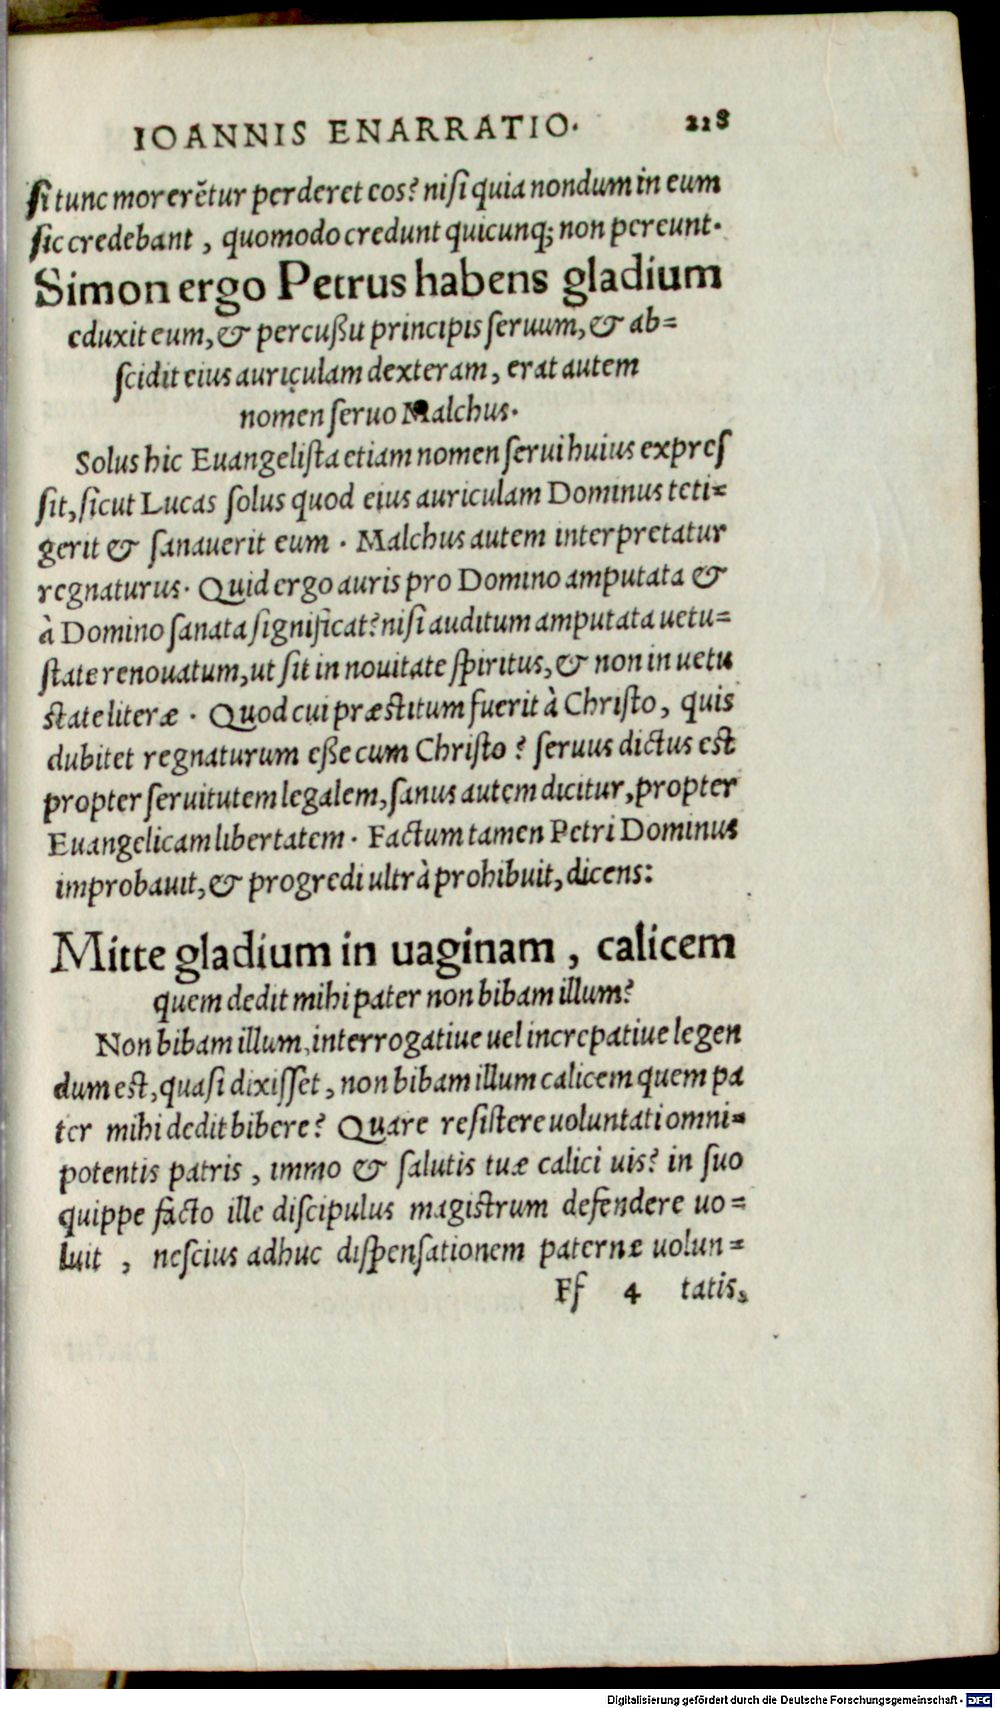 IOANNIS ENARRATIO. 218
ſi tunc morerẽtur perderet eos? niſi quia nondum in eum
ſic credebant, quomodo credunt quicunq; non pereunt.
Simon ergo Petrus habens gladium
eduxit eum, & percuſſit principis ſeruum, & ab=
ſcidit eius auriculam dexteram, erat autem
nomen ſeruo Malchus.
Solus hic Euangeliſta etiam nomen ſerui huius expreſ
ſit, ſicut Lucas ſolus quod eius auriculam Dominus teti=
gerit & ſanauerit eum. Malchus autem interpretatur
regnaturus. Quid ergo auris pro Domino amputata &
à Domino ſanata ſignificat? niſi auditum amputata uetu=
ſtate renouatum, ut ſit in nouitate ſpiritus, & non in uetu
ſtate literæ. Quod cui præſtitum fuerit à Chriſto, quis
dubitet regnaturum eſſe cum Chriſto? ſeruus dictus eſt
propter ſeruitutem legalem, ſanus autem dicitur, propter
Euangelicam libertatem. Factum tamen Petri Dominus
improbauit, & progredi ultrà prohibuit, dicens:
Mitte gladium in uaginam, calicem
quem dedit mihi pater non bibam illum?
Non bibam illum, interrogatiue uel increpatiue legen
dum eſt, quaſi dixiſſet, non bibam illum calicem quem pa
ter mihi dedit bibere? Quare reſiſtere uoluntati omni=
potentis patris, immo & ſalutis tuæ calici uis? in ſuo
quippe facto ille diſcipulus magiſtrum defendere uo=
luit, neſcius adhuc diſpenſationem paternæ uolun=
Ff 4 tatis,
Digitalisierung gefördert durch die Deutsche Forschungsgemeinschaft - DFG